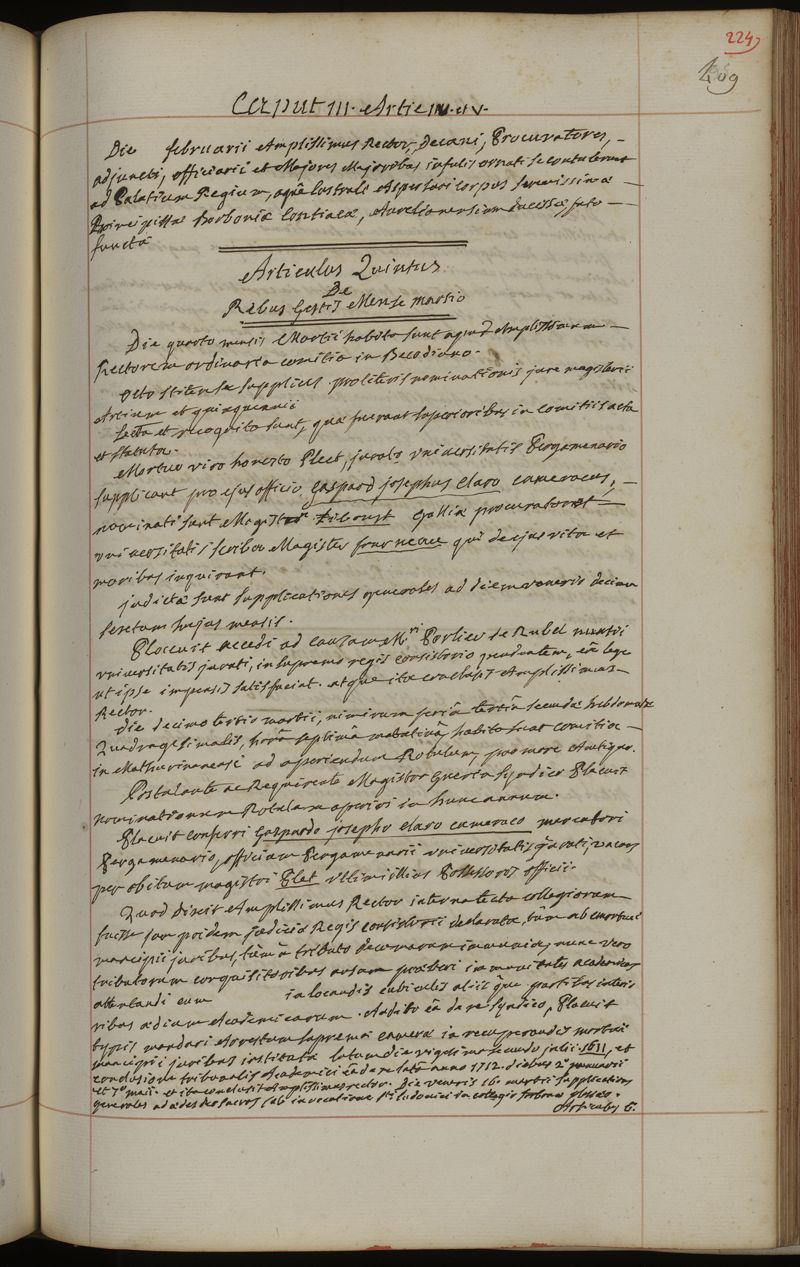 224
209
Caput III. Artic IV. et V.
Die februarii Amplissimus Rector, Decani, Procuratores, -
adjuncti, officiarii et Majores Majoribus infulis ornati se contulerunt
ad Palatium Regium, aquâ lustrali Aspersuri corpus serenissimæ -
Principissæ borboniæ Contiacæ, Aurelianensium ducessæ fato -
functæ
Articulus Quintus
De
Rebus Gestis Mense martio
Die quarto mensis Martii habita sunt apud Amplissimum -
Rectorem ordinaria comitia in Becodiano.
octo stitense supplices pro literis nominationis jure magisterii
Artium et quinquennii
Lecta et recognita sunt, quæ fuerant superioribus in comitiis acta
et statuta.
Mortuo viro honesto Elect, jurato universitatis Pergamenario
supplicant pro ejus officio gaspard josephus claro cameracus, -
nominati sunt Magister Zibourst galliæ procurator et -
universitatis scriba Magister fourneau qui de ejus vita et
moribus inquirant.
judictæ sunt supplicationes generales ad diem veneris decimu
sextum hujus mensis.
Placuit accedi ad causam Mri Porlier de Rubel nuntii
universitatis jurati, in supremo regis consistorio pendentem, eâ lege
ut ipse impensis satisfaciat. atque ita conclusit Amplissimus -
Rector.
Die decimo tertio martii, nimirum feriâ tertiâ secundæ hebdomadæ
Quadragesimalis, horâ septimâ matutinâ, habita sunt comitia -
in Mathurinanensi ad aperiendum Rotulum, pro more Antiquo.
Postulante ac Requirente Magistro Guerin syndico Placuit
nominationum Rotulum aperiri in hunc annum.
Placuit conferri Gaspardo josepho claro cameraco mercatori
Pergamenario, officium Pergamenarii universitatis jurati, vacans
per obitum magistri Elet ultimi illius Possessoris officii.
Quod dixit Amplissimus Rector interna tecta collegiorum
fuisse jam pridem judicio Regis consistorii declarata, tùm ab emortui
mancipii juribus, tùm à tributo decumarum immunia, nunc vero
tributorum conquisitoribus ansam præberi immunitates academicas
attentandi eum in locandis cubiculis aliisque partibus interio
ribus ædium Academicarum. Audito eâ de re syndico, Placuit
typis mandari Arrestum supremæ cameræ in recuperandis mortui
mancipii juribus institutæ latum die vigesima secunda julii 1611, et
conclusionem tribunalis Academici eâ de re latâ anno 1712. diebus 2â januarii
et 7â maii. et ita conclusit Amplissimus rector. Die veneris 16 martii supplicationes
generales ad ædes deo sacras sub invocatione Sti ludovici in collegio
Articulus 6.